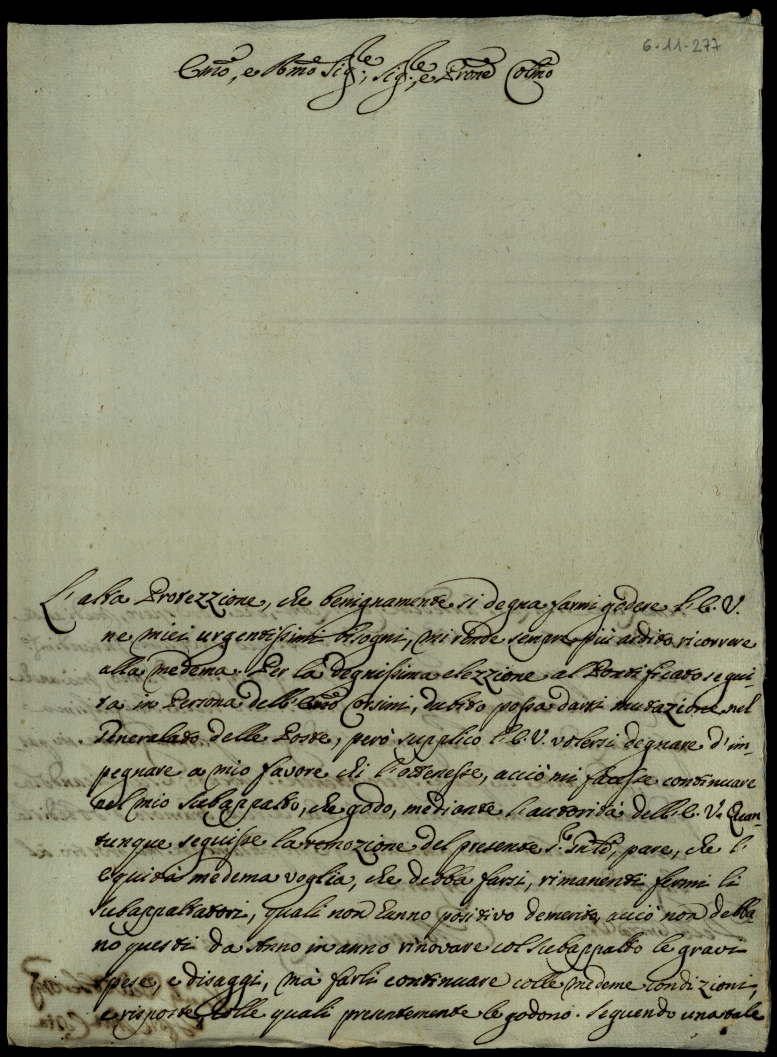 6-11-277
Emo, e Rmo Sig.re, Sig.re, e Prone Colmo
L'alta Protezzione, che benignamente si degna farmi godere l'E. V.
ne miei urgentissimi bisogni, mi rende sempre più ardito ricorrere
alla medema. Per la degnissima elezzione al Pontificato segui-
ta in Persona dell'Emo Corsini, dubito possa darsi mutazione nel
Generalato delle Poste, però supplico l'E. V. volersi degnare d'im-
pegnare a mio favore chi l'ottenesse, acciò mi facesse continuare
nel mio subappalto, che godo, mediante l'autorità dell'E. V. Quan-
tunque seguisse la remozione del presente, pare, che l'
equità medema voglia, che debba farsi, rimanenti fermi li
subappaltatori, quali non hanno positivo demerito, acciò non debba-
no questi da Anno in anno rinovare col subappalto le gravi
spese, e disaggi, mà farli continuare colle medeme condizioni,
e risposte colle quali presentemente le godono. Seguendo una tale